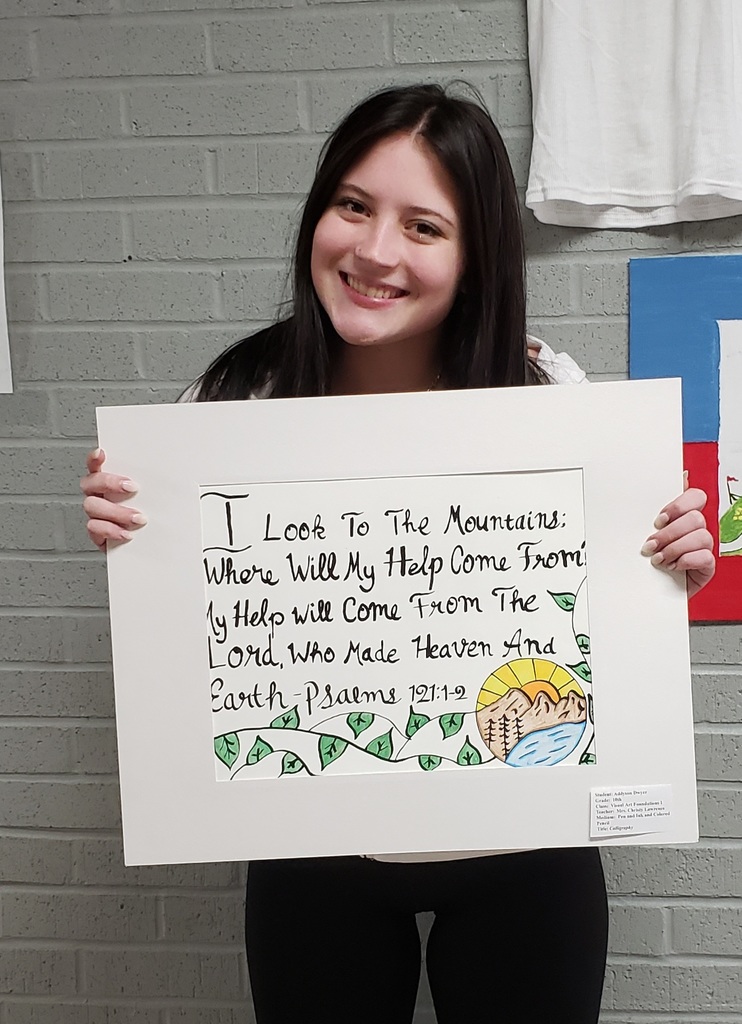 I Look To The Mountains;
Where Will My Help Come From?
My Help will Come From The
Lord, Who Made Heaven And
Earth - Psalms 121:1-2
Student: Addyson Dwyer
Grade: 10th
Class: Visual Art Foundations I
Teacher: Mrs. Christy Lawrence
Medium: Pen and Ink and Colored
Pencil
Title: Calligraphy